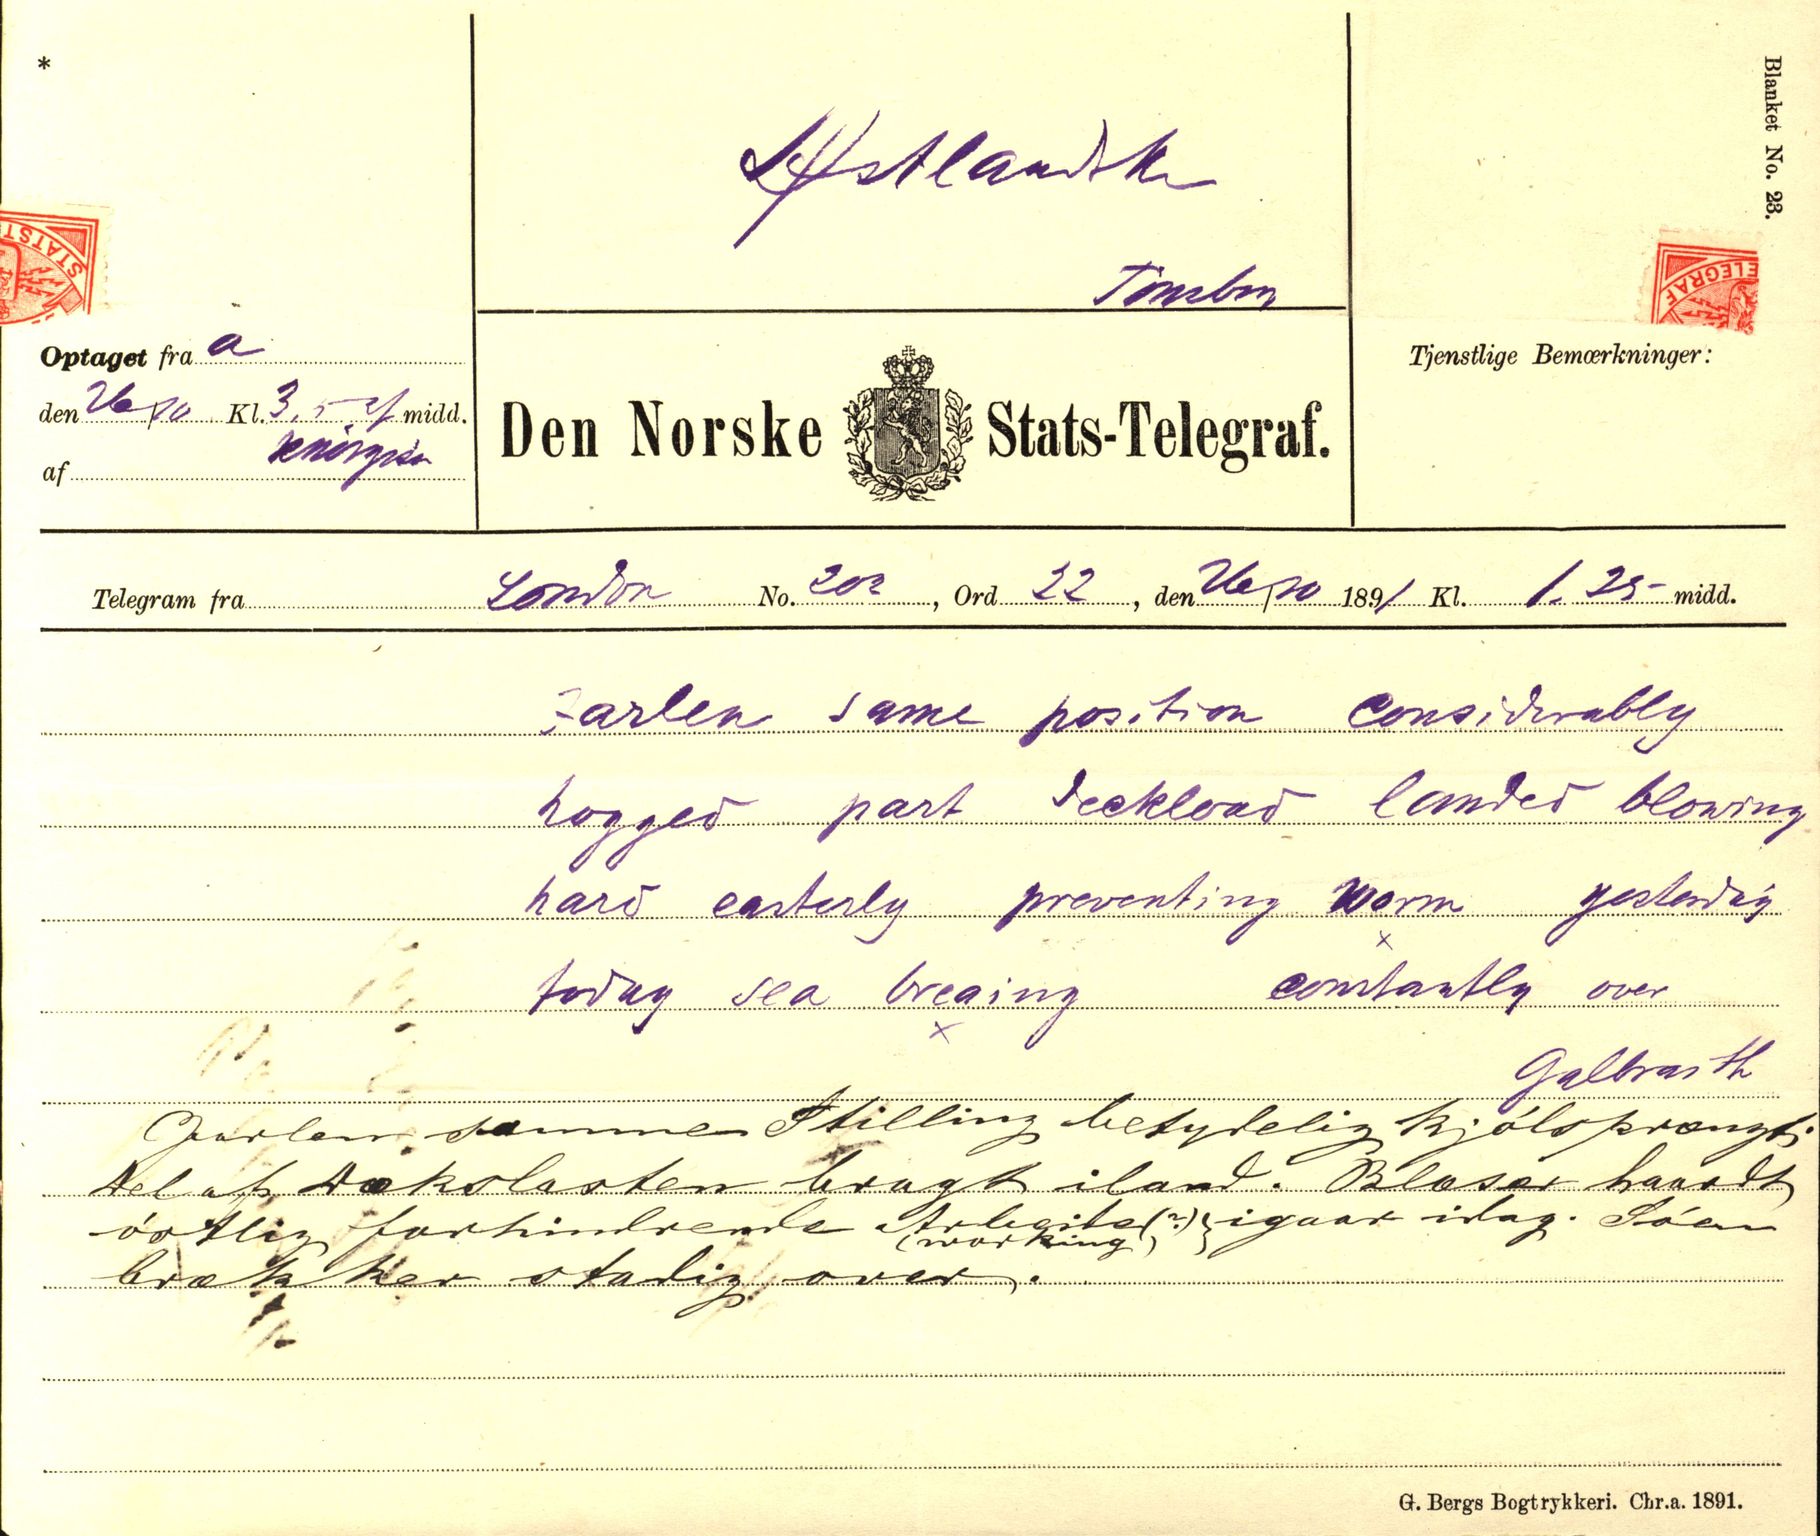 *
Østlandske
Tønsberg
Blanket No. 23.
STATST
TELEGRAF
Optaget fra a
den 26/10 Kl. 3, 5 ef midd.
af
Den Norske Stats-Telegraf.
Tjenstlige Bemærkninger:
Telegram fra London No. 202, Ord 22, den 26/10 1891 Kl. 1.25 midd.
Jarlen same position considerably
hogged part deckload landed blowing
hard easterly preventing worm yesterday
x
today sea breaing constantly over
x
Galbraith
Jarlen samme Stilling betydelig kjölsprængt.
Del af Dækslasten bragt iland. Blæser haardt
östlig forhindrende Arbeide(?)} igaar idag. Söen
(working)
brækker stadig over.
G. Bergs Bogtrykkeri. Chr.a. 1891.